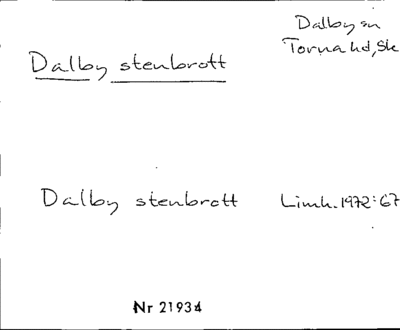 Dalby sn
Torna hd, Sk
Dalby stenbrott
Dalby stenbrott Limh. 1972:67
Nr 21934